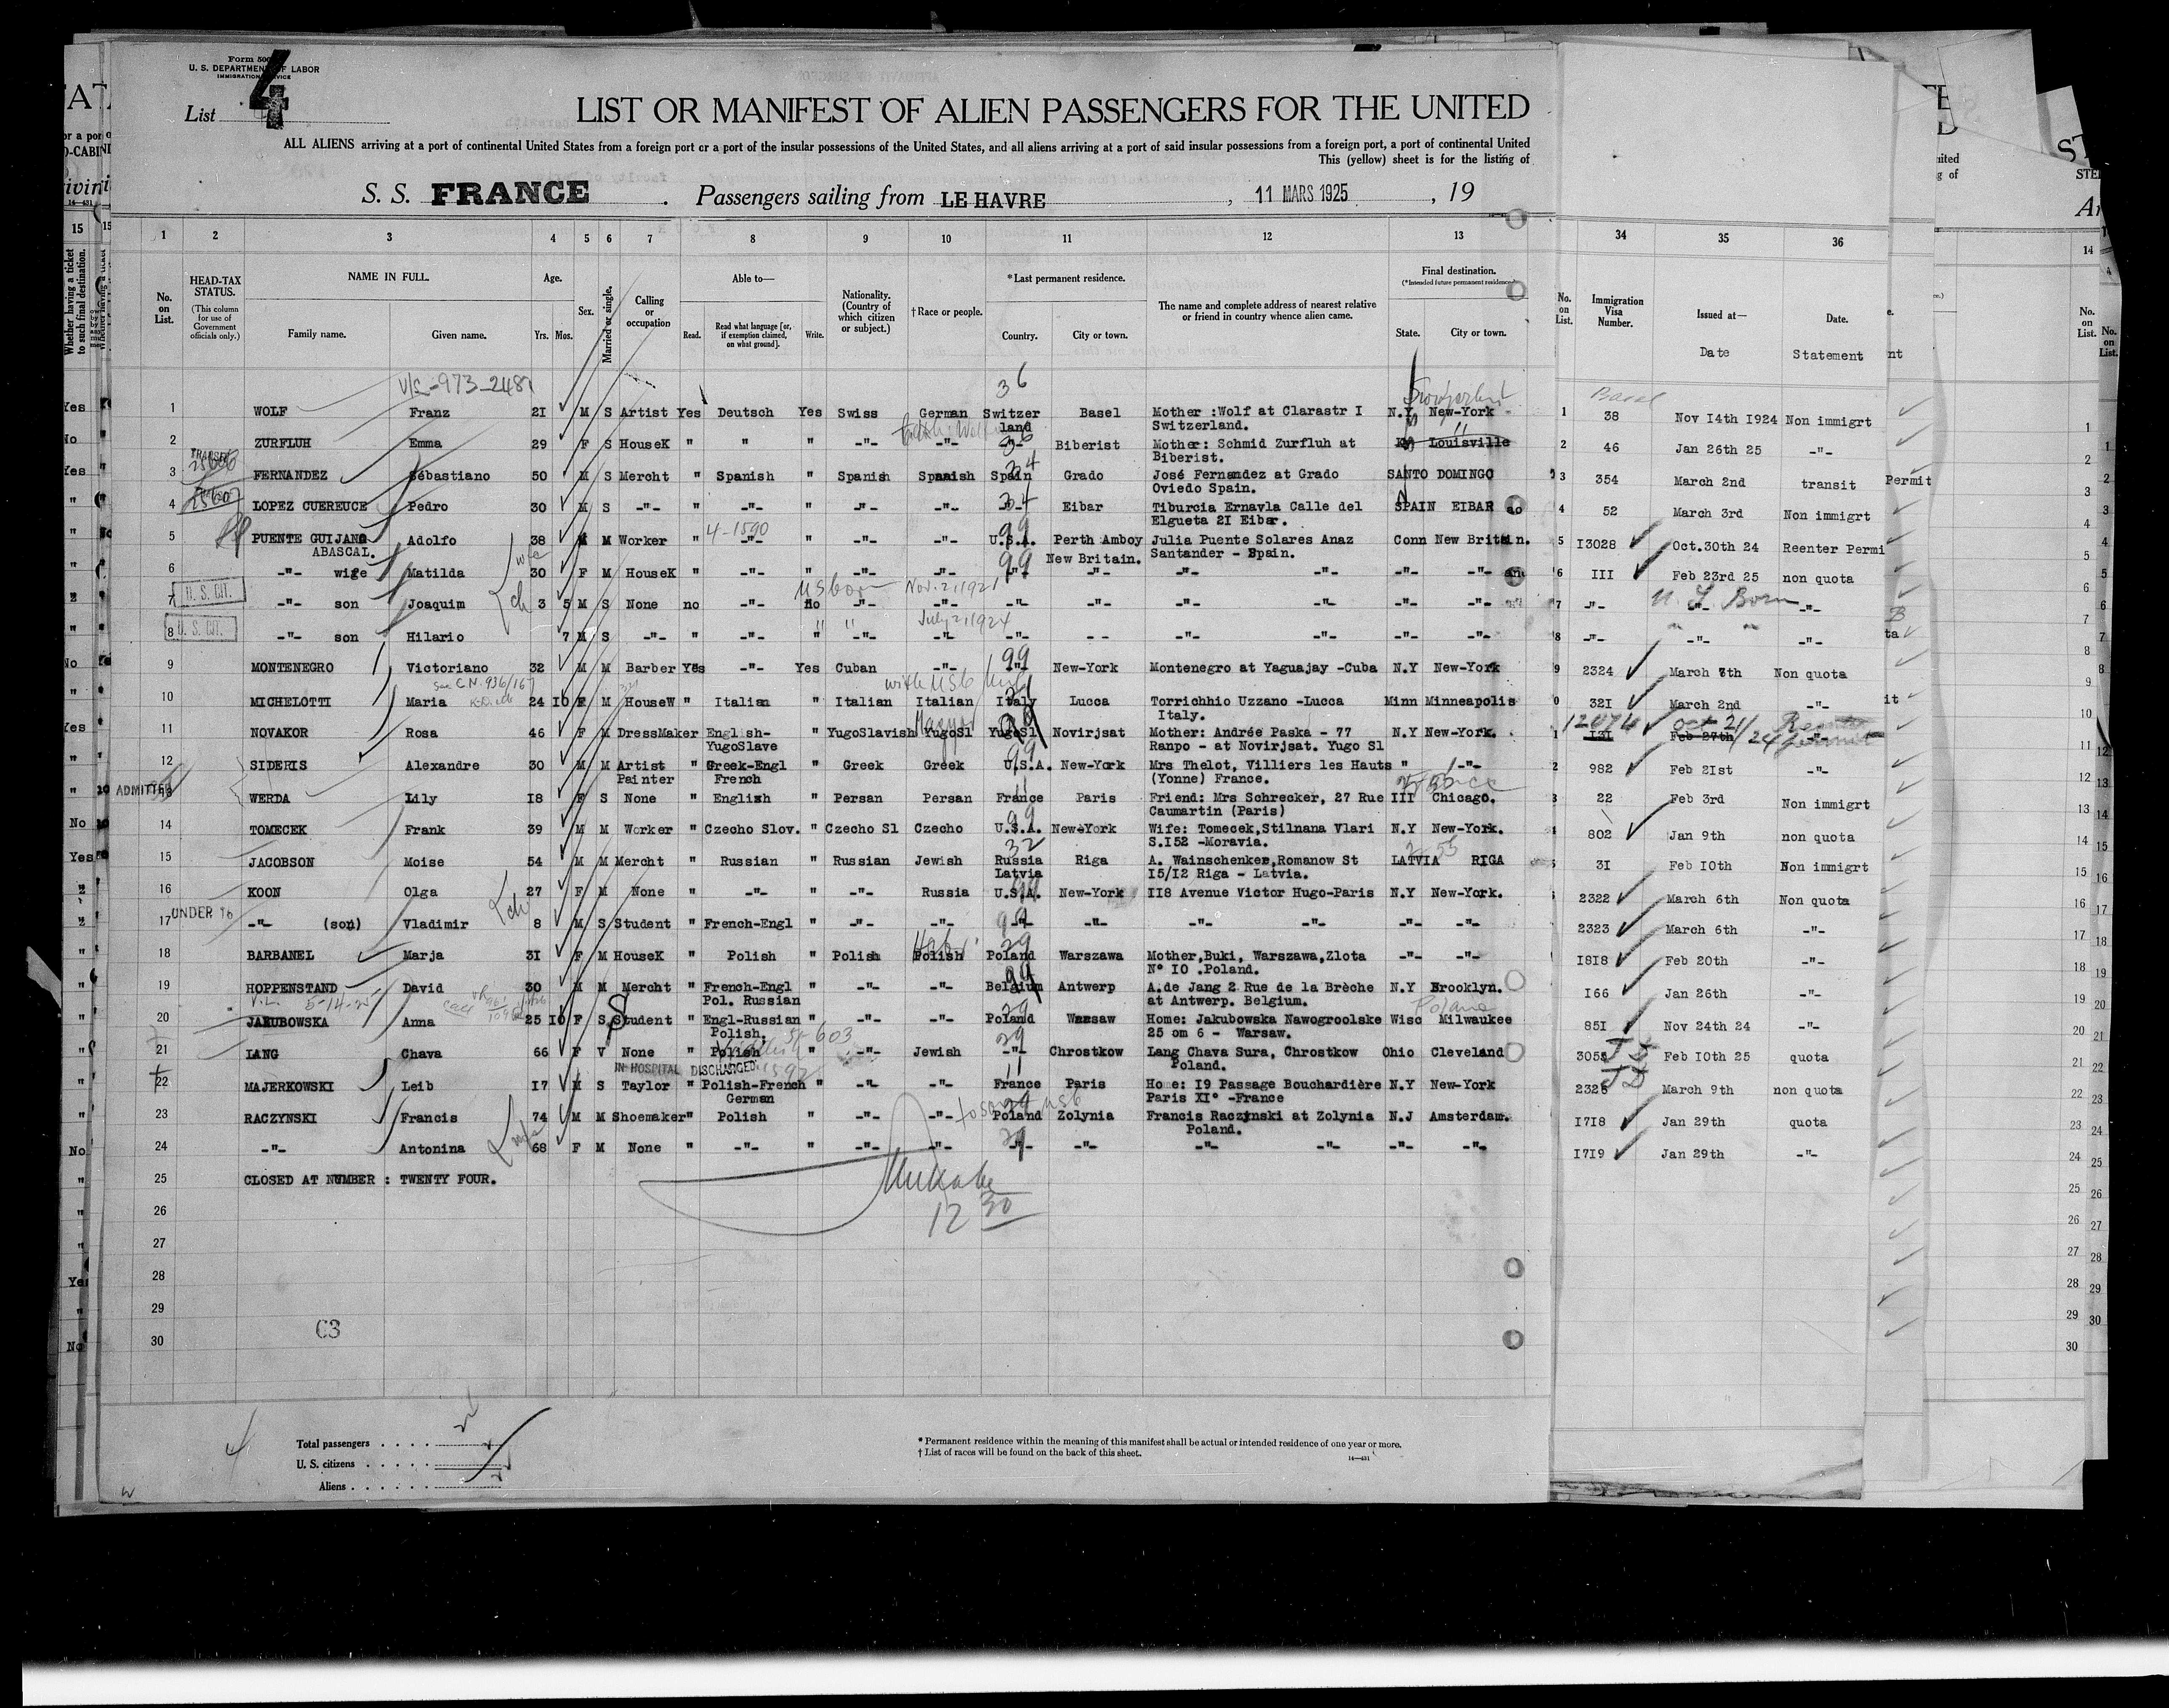 Form 500
U. S. DEPARTMENT OF LABOR
IMMIGRATION SERVICE
List 4
LIST OR MANIFEST OF ALIEN PASSENGERS FOR THE UNITED
ALL ALIENS arriving at a port of continental United States from a foreign port or a port of the insular possessions of the United States, and all aliens arriving at a port of said insular possessions from a foreign port, a port of continental United
This (yellow) sheet is for the listing of
S. S. FRANCE . Passengers sailing from LE HAVRE , 11 MARS 1925 , 19
1 2 3 4 5 6 7 8 9 10 11 12 13 34 35 36
No. on List. HEAD-TAX STATUS. (This column for use of Government officials only.) NAME IN FULL. Family name. Given name. Age. Yrs. Mos. Sex. Married or single. Calling or occupation Able to— Read. Read what language [or, if exemption claimed, on what ground]. Write. Nationality. (Country of which citizen or subject.) † Race or people. *Last permanent residence. Country. City or town. The name and complete address of nearest relative or friend in country whence alien came. Final destination. (*Intended future permanent residence.) State. City or town. No. on List. Immigration Visa Number. Issued at— Date Date. Statement
V/S-973-2481 36 Basel
1 WOLF Franz 2I M S Artist Yes Deutsch Yes Swiss German Switzer land Basel Mother :Wolf at Clarastr I Switzerland. N.Y New-York 1 38 Nov I4th I924 Non immigrt
2 ZURFLUH Emma 29 F S HouseK " " " -"- -"- -"- Biberist Mother: Schmid Zurfluh at Biberist. Louisville 2 46 Jan 26th 25 -"-
3 FERNANDEZ Sébastiano 50 M S Mercht " Spanish " Spanish Spanish Spain Grado José Fernandez at Grado Oviedo Spain. SANTO DOMINGO 3 354 March 2nd transit
4 LOPEZ CUEREUCE Pedro 30 M S -"- " -"- " -"- -"- -"- Eibar Tiburcia Ernavla Calle del Elgueta 2I Eibar. SPAIN EIBAR 4 52 March 3rd Non immigrt
4-1590
5 PUENTE GUIJANO ABASCAL. Adolfo 38 M M Worker " -"- " -"- -"- U.S.A. Perth Amboy New Britain. Julia Puente Solares Anaz Santander - Spain. Conn New Britain. 5 I3028 Oct.30th 24 Reenter Permi
6 -"- wife Matilda 30 F M HouseK " -"- " -"- -"- -"- -"- -"- -"- -"- -"- 6 III Feb 23rd 25 non quota
U. S. CIT. US born Nov. 2, 1921 U. S. Born
7 -"- son Joaquim 3 5 M S None no -"- No -"- -"- -"- -"- -"- -"- -"- -"- 7 -"- -"- -"-
U. S. CIT. " " July 21 1924
8 -"- son Hilario 7 M S -"- " -"- " -"- -"- -"- - - -"- -"- -"- -"- 8 -"- -"- -"-
9 MONTENEGRO Victoriano 32 M M Barber Yes -"- Yes Cuban -"- -"- New-York Montenegro at Yaguajay -Cuba N.Y New-York 9 2324 March 8th Non quota
10 MICHELOTTI Maria 24 I0 F M HouseW " Italian " Italian Italian Italy Lucca Torrichhio Uzzano -Lucca Italy. Minn Minneapolis 0 32I March 2nd -"-
11 NOVAKOR Rosa 46 F M DressMaker English- YugoSlave " YugoSlavish YugoSl Magyar YugoSl Novirjsat Mother: Andrée Paska - 77 Ranpo - at Novirjsat. Yugo Sl N.Y New-York. 1 I3I 12074 Feb 27th Oct 21/24 Reenter permit
12 SIDERIS Alexandre 30 M M Artist Painter " Greek-Engl French " Greek Greek U.S.A. New-York Mrs Thelot, Villiers les Hauts (Yonne) France. " -"- 2 982 Feb 2Ist -"-
ADMITTED
13 WERDA Lily I8 F S None " English " Persan Persan France Paris Friend: Mrs Schrecker, 27 Rue Caumartin (Paris) III Chicago. 3 22 Feb 3rd Non immigrt
14 TOMECEK Frank 39 M M Worker " Czecho Slov. " Czecho Sl Czecho U.S.A. New-York Wife: Tomecek,Stilnana Vlari S.I52 -Moravia. N.Y New-York. 802 Jan 9th non quota
15 JACOBSON Moise 54 M M Mercht " Russian " Russian Jewish Russia Latvia Riga A. Wainschenker,Romanow St I5/I2 Riga - Latvia. LATVIA RIGA 3I Feb I0th Non immigrt
16 KOON Olga 27 F M None " -"- " -"- Russia U.S.A. New-York II8 Avenue Victor Hugo-Paris N.Y New-York. 2322 March 6th Non quota
UNDER 16
17 -"- (son) Vladimir 8 M S Student " French-Engl " -"- -"- -"- -"- -"- -"- -"- -"- 2323 March 6th -"-
18 BARBANEL Marja 3I F M HouseK " Polish " Polish Polish Poland Warszawa Mother,Buki, Warszawa,Zlota N° IO .Poland. -"- -"- I8I8 Feb 20th -"-
19 HOPPENSTAND David 30 M M Mercht " French-Engl Pol. Russian " -"- -"- Belgium Antwerp A.de Jang 2 Rue de la Brèche at Antwerp. Belgium. N.Y Brooklyn. I66 Jan 26th -"-
20 JAKUBOWSKA Anna 25 I0 F S Student " Engl-Russian Polish. " -"- -"- Poland Warsaw Home: Jakubowska Nawogroolske 25 om 6 - Warsaw. Wisc Milwaukee 85I Nov 24th 24 -"-
21 LANG Chava 66 F V None " Polish " -"- Jewish -"- Chrostkow Lang Chava Sura, Chrostkow Poland. Ohio Cleveland 3055 Feb I0th 25 quota
IN HOSPITAL DISCHARGED
22 MAJERKOWSKI Leib I7 M S Taylor " Polish-French German " -"- -"- France Paris Home: I9 Passage Bouchardière Paris XI° -France N.Y New-York 2325 March 9th non quota
23 RACZYNSKI Francis 74 M M Shoemaker " Polish " -"- -"- Poland Zolynia Francis Raczynski at Zolynia Poland. N.J Amsterdam. I7I8 Jan 29th quota
24 -"- Antonina 68 F M None " -"- " -"- -"- -"- -"- -"- -"- -"- -"- I7I9 Jan 29th -"-
25 CLOSED AT NUMBER : TWENTY FOUR.
26 12 30
27
28
29
C3
30
Total passengers
U. S. citizens
Aliens
* Permanent residence within the meaning of this manifest shall be actual or intended residence of one year or more.
† List of races will be found on the back of this sheet.
14—431